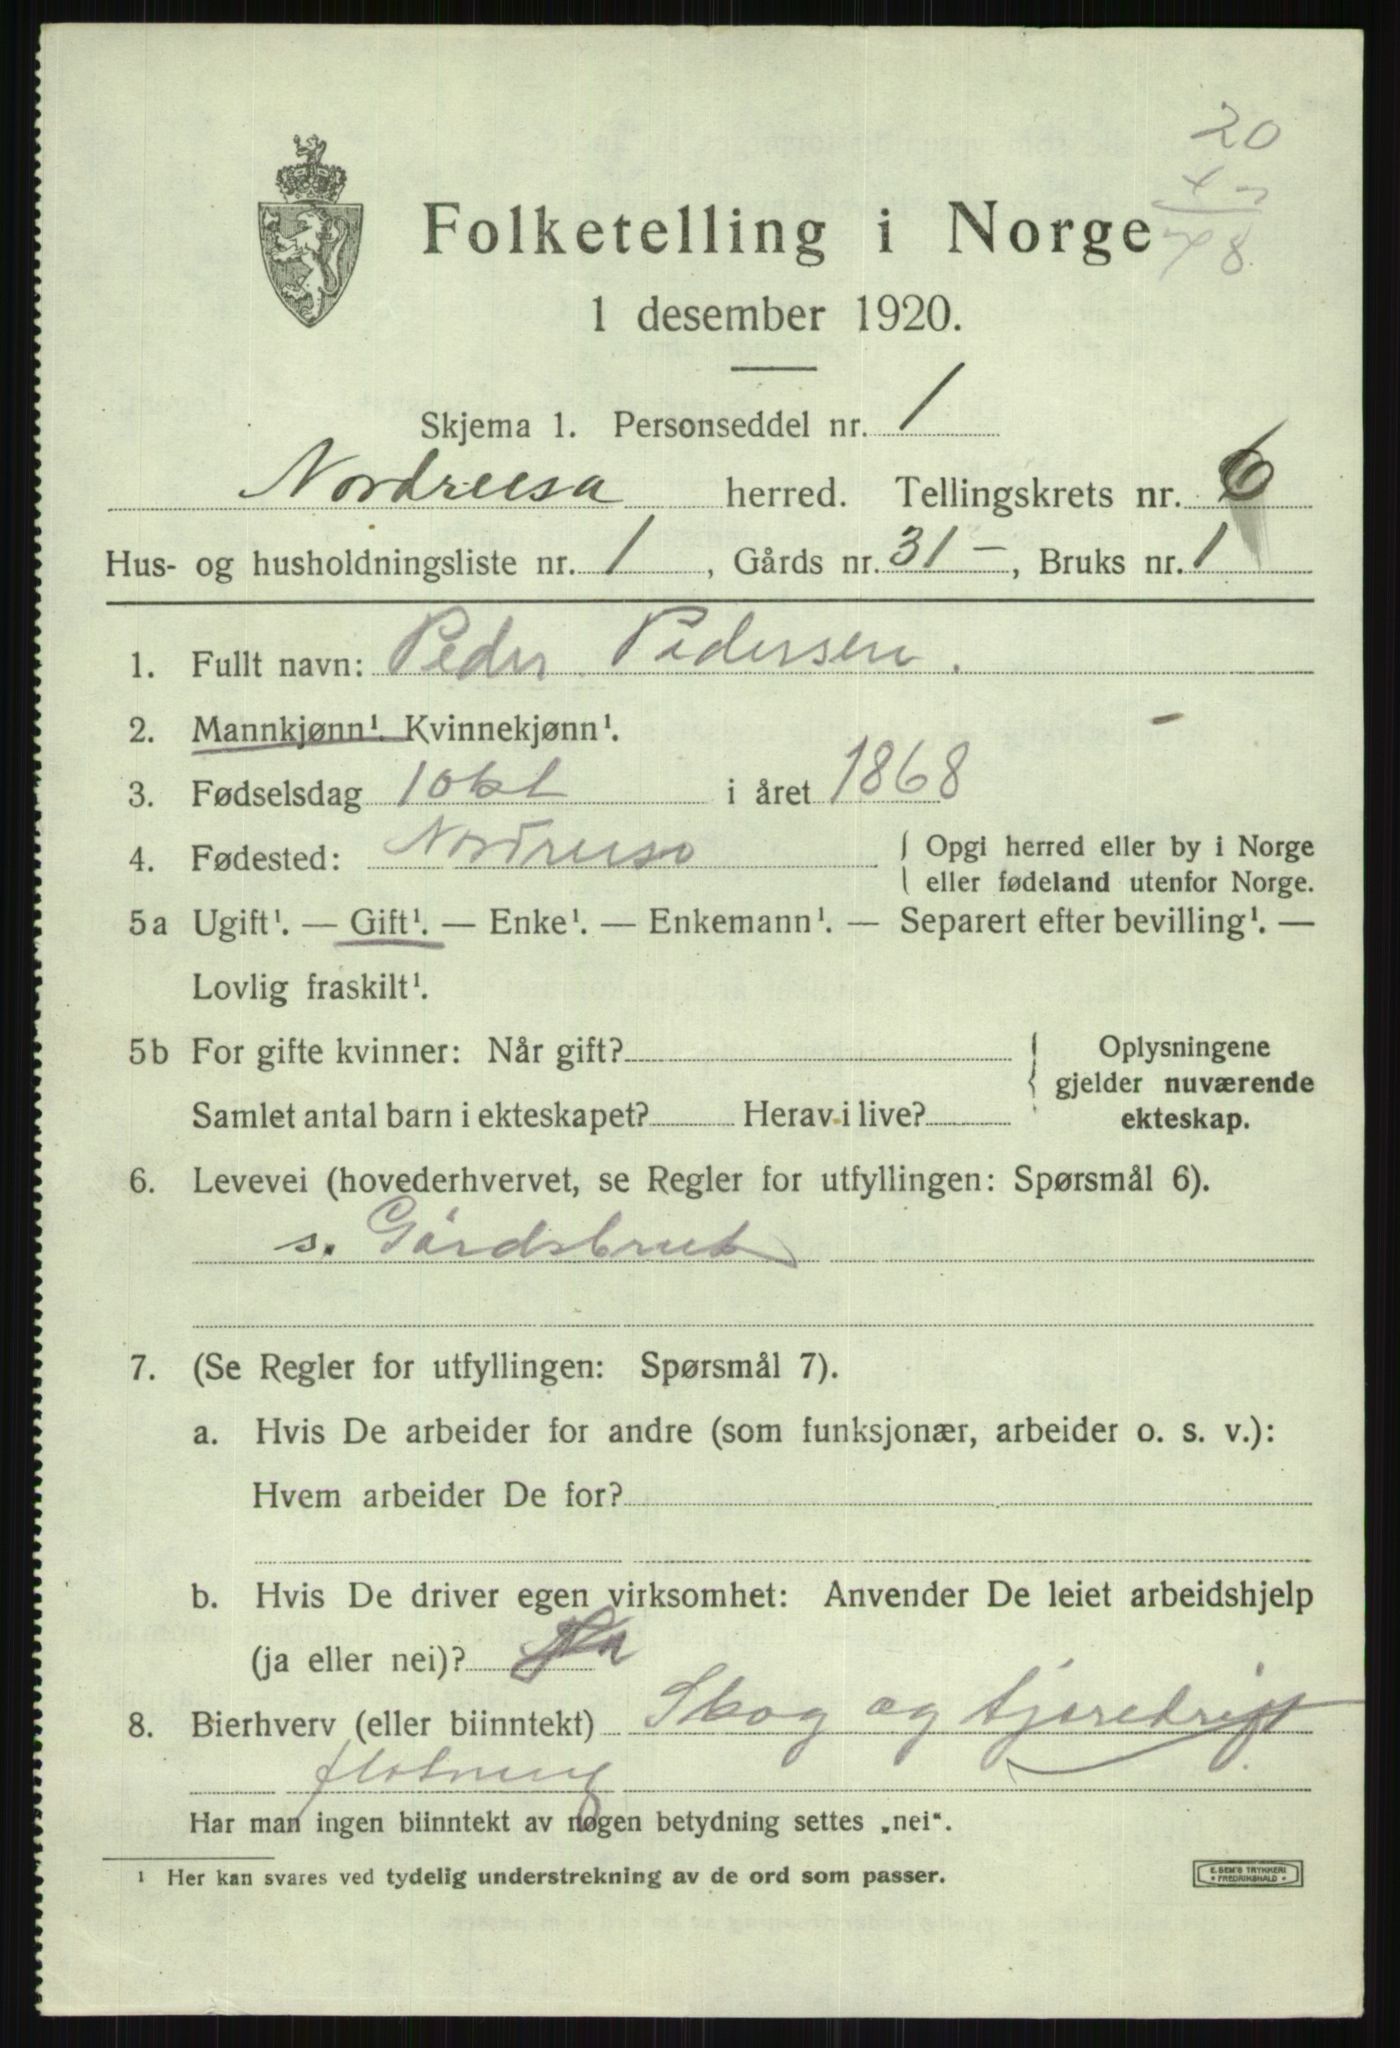 20
48
Folketelling i Norge
1 desember 1920.
Skjema 1. Personseddel nr. 1
Nordreisa herred. Tellingskrets nr. 6
Hus- og husholdningsliste nr. 1, Gårds nr. 31 –, Bruks nr. 1
1. Fullt navn: Peder Pedersen.
2. Mannkjønn¹. Kvinnekjønn¹.
3. Fødselsdag 1 okt i året 1868
4. Fødested: Nordreisa { Opgi herred eller by i Norge
eller fødeland utenfor Norge.
5a Ugift¹. — Gift¹. — Enke¹. — Enkemann¹. — Separert efter bevilling¹. —
Lovlig fraskilt¹.
5b For gifte kvinner: Når gift? { Oplysningene
gjelder nuværende
Samlet antal barn i ekteskapet? Herav i live? ekteskap.
6. Levevei (hovederhvervet, se Regler for utfyllingen: Spørsmål 6).
s. Gårdsbruk
7. (Se Regler for utfyllingen: Spørsmål 7).
a. Hvis De arbeider for andre (som funksjonær, arbeider o. s. v.):
Hvem arbeider De for?
b. Hvis De driver egen virksomhet: Anvender De leiet arbeidshjelp
(ja eller nei)?
8. Bierhverv (eller biinntekt) Skog og tjæredrift
fløtning
Har man ingen biinntekt av nogen betydning settes „nei“.
¹ Her kan svares ved tydelig understrekning av de ord som passer.
E. SEM'S TRYKKERI
• FREDRIKSHALD •